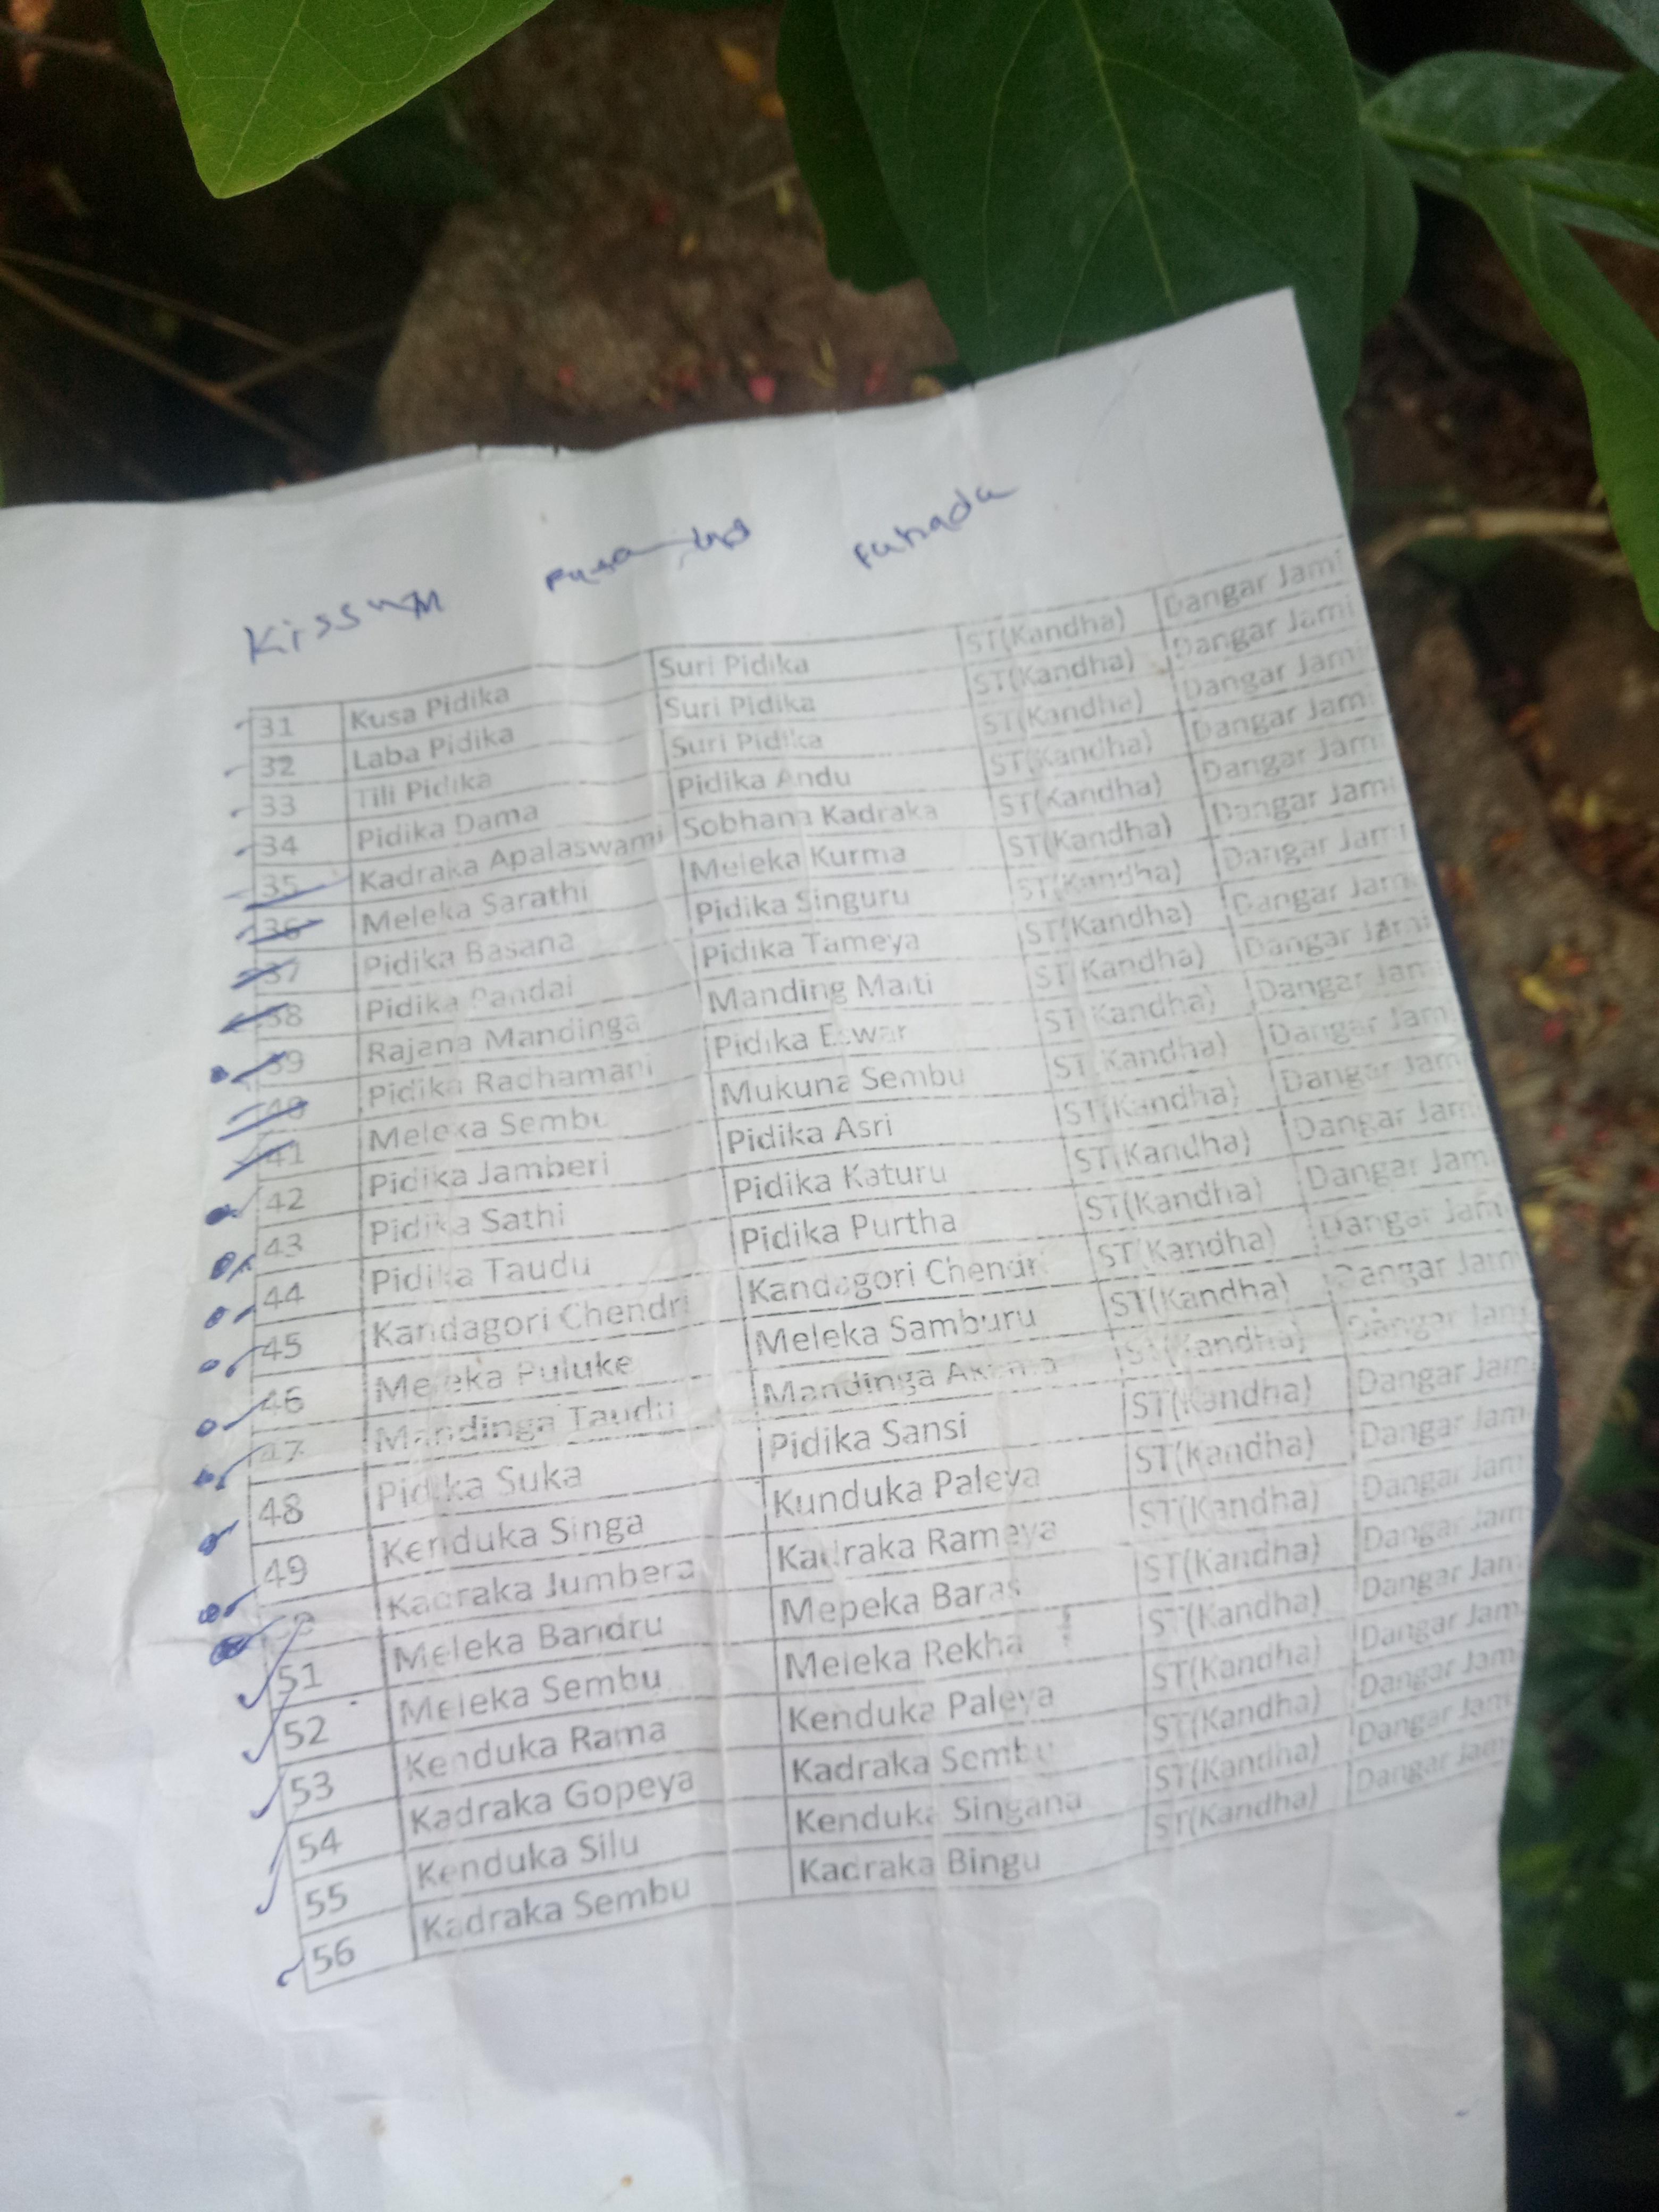 Kissum
31 Kusa Pidika Suri Pidika ST(Kandha) Dangar Jami
32 Laba Pidika Suri Pidika ST(Kandha) Dangar Jami
33 Tili Pidika Suri Pidika ST(Kandha) Dangar Jami
34 Pidika Dama Pidika Andu ST(Kandha) Dangar Jami
35 Kadraka Apalaswami Sobhana Kadraka ST(Kandha) Dangar Jami
36 Meleka Sarathi Meleka Kurma ST(Kandha) Dangar Jami
37 Pidika Basana Pidika Singuru ST(Kandha) Dangar Jami
38 Pidika Pandai Pidika Tameya ST(Kandha) Dangar Jami
39 Rajana Mandinga Manding Maiti ST(Kandha) Dangar Jami
40 Pidika Radhamani Pidika Eswar ST(Kandha) Dangar Jami
41 Meleka Sembu Mukuna Sembu ST(Kandha) Dangar Jami
42 Pidika Jamberi Pidika Asri ST(Kandha) Dangar Jami
43 Pidika Sathi Pidika Katuru ST(Kandha) Dangar Jami
44 Pidika Taudu Pidika Purtha ST(Kandha) Dangar Jami
45 Kandagori Chendri Kandagori Chendri ST(Kandha) Dangar Jami
46 Meleka Puluke Meleka Samburu ST(Kandha) Dangar Jami
47 Mandinga Taudu Mandinga ST(Kandha) Dangar Jami
48 Pidika Suka Pidika Sansi ST(Kandha) Dangar Jami
49 Kenduka Singa Kunduka Paleya ST(Kandha) Dangar Jami
50 Kadraka Jumbera Kadraka Rameya ST(Kandha) Dangar Jami
51 Meleka Bandru Mepeka Baras ST(Kandha) Dangar Jami
52 Meleka Sembu Meleka Rekha ST(Kandha) Dangar Jami
53 Kenduka Rama Kenduka Paleya ST(Kandha) Dangar Jami
54 Kadraka Gopeya Kadraka Sembu ST(Kandha) Dangar Jami
55 Kenduka Silu Kenduka Singana ST(Kandha) Dangar Jami
56 Kadraka Sembu Kadraka Bingu ST(Kandha) Dangar Jami